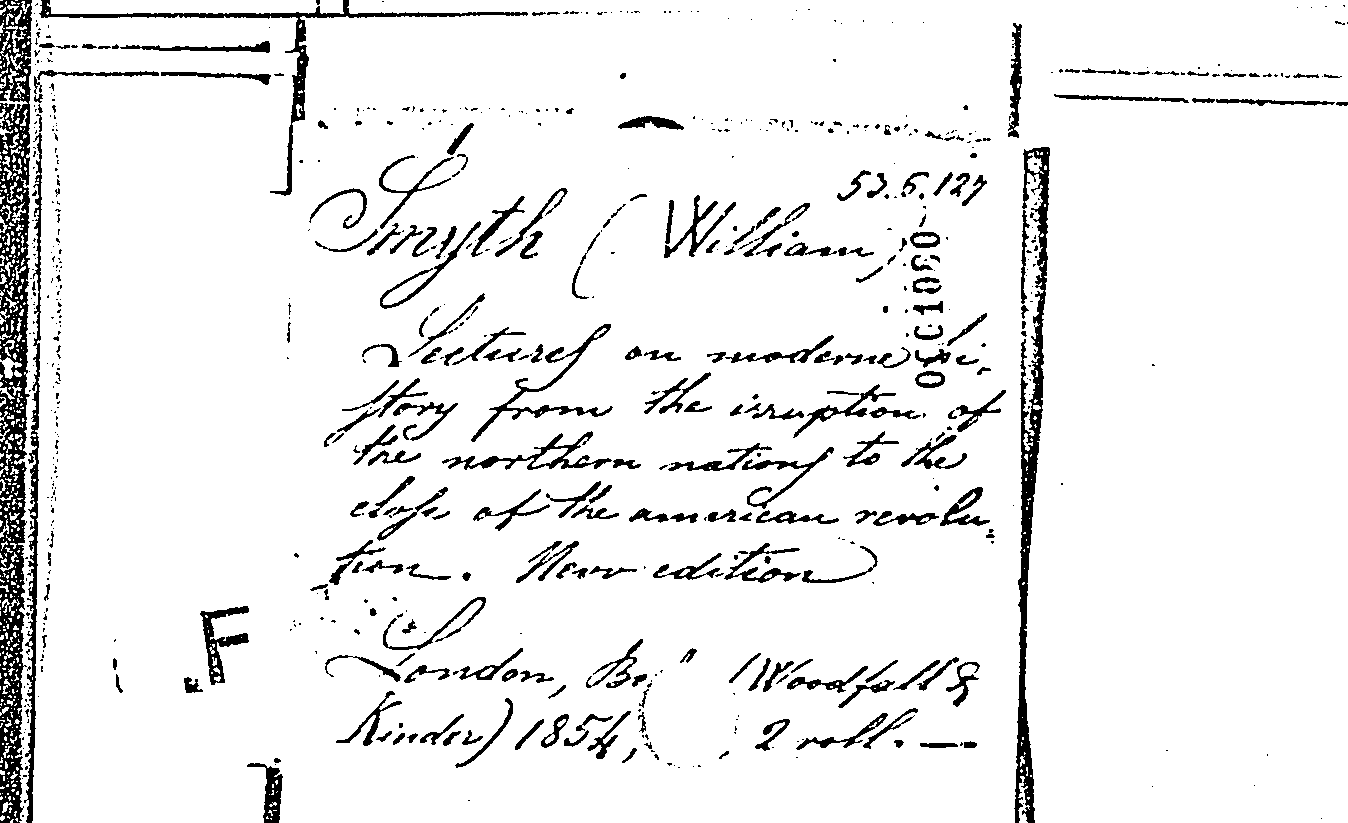 53.6.127
Smyth (William)
Lectures on moderne hi-
story from the irruption of
the northern nations to the
close of the american revolu-
tion. New edition
London, (Woodfall &
Kinder) 1854, 2 voll. —
F.